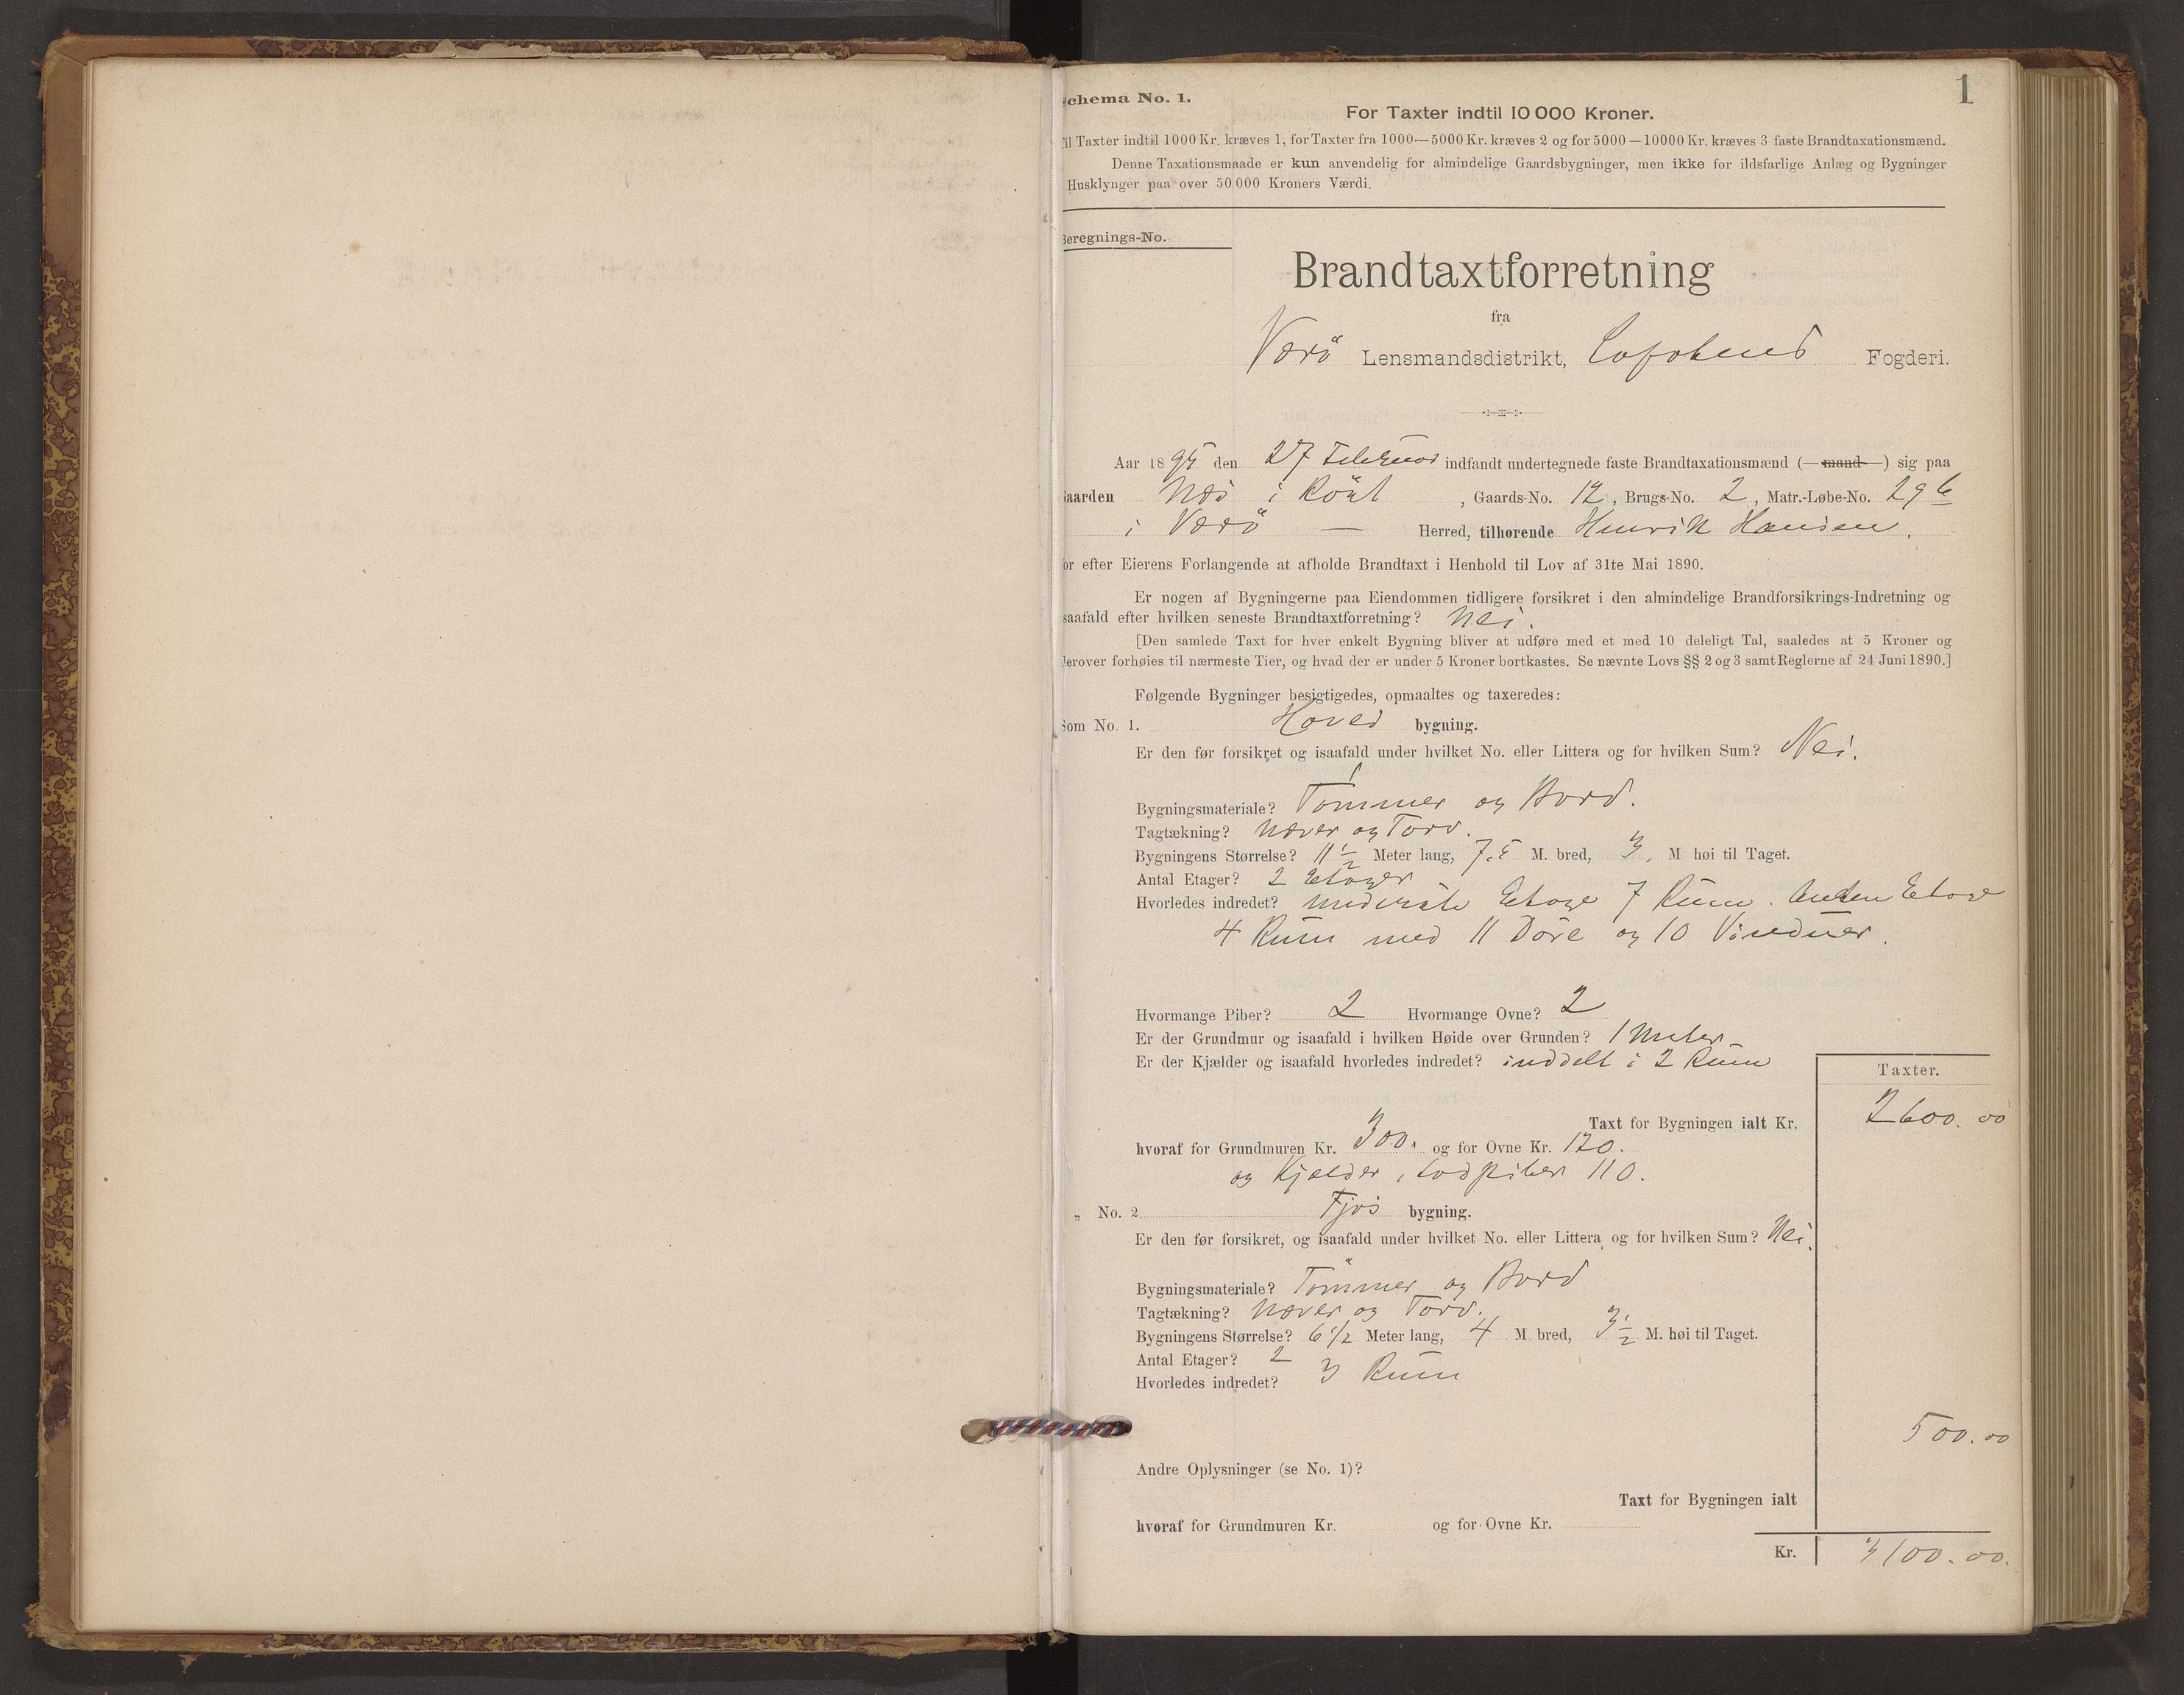 1
Schema No. 1.
For Taxter indtil 10 000 Kroner.
Til Taxter indtil 1000 Kr. kræves 1, for Taxter fra 1000—5000 Kr. kræves 2 og for 5000—10000 Kr. kræves 3 faste Brandtaxationsmænd.
Denne Taxationsmaade er kun anvendelig for almindelige Gaardsbygninger, men ikke for ildsfarlige Anlæg og Bygninger
Husklynger paa over 50 000 Kroners Værdi.
Beregnings-No.
Brandtaxtforretning
fra
Værö Lensmandsdistrikt, Lofotens Fogderi.
Aar 1895 den 27 Februar indfandt undertegnede faste Brandtaxationsmænd (— mand —) sig paa
Gaarden Næs i Röst, Gaards-No. 12, Brugs-No. 2, Matr.-Løbe-No. 29 b
i Værö — Herred, tilhørende Henrik Hansen.
for efter Eierens Forlangende at afholde Brandtaxt i Henhold til Lov af 31te Mai 1890.
Er nogen af Bygningerne paa Eiendommen tidligere forsikret i den almindelige Brandforsikrings-Indretning og
isaafald efter hvilken seneste Brandtaxtforretning? Nei.
[Den samlede Taxt for hver enkelt Bygning bliver at udføre med et med 10 deleligt Tal, saaledes at 5 Kroner og
derover forhøies til nærmeste Tier, og hvad der er under 5 Kroner bortkastes. Se nævnte Lovs §§ 2 og 3 samt Reglerne af 24 Juni 1890.]
Følgende Bygninger besigtigedes, opmaaltes og taxeredes:
Som No. 1. Hoved bygning.
Er den før forsikret og isaafald under hvilket No. eller Littera og for hvilken Sum? Nei.
Bygningsmateriale? Tömmer og Bord.
Tagtækning? Næver og Torv.
Bygningens Størrelse? 11 1/2 Meter lang, 7,5 M. bred, 3, M høi til Taget.
Antal Etager? 2 Etager
Hvorledes indredet? nederste Etage 7 Rum. Anden Etage
4 Rum med 11 Döre og 10 Vinduer.
Hvormange Piber? 2 Hvormange Ovne? 2
Er der Grundmur og isaafald i hvilken Høide over Grunden? 1 Meter
Er der Kjælder og isaafald hvorledes indredet? inddelt i 2 Rum
Taxter.
Taxt for Bygningen ialt Kr. 2600. 00
hvoraf for Grundmuren Kr. 300. og for Ovne Kr. 120.
og Kjælder, 110.
„ No. 2. Fjös bygning.
Er den før forsikret, og isaafald under hvilket No. eller Littera og for hvilken Sum? Nei.
Bygningsmateriale? Tömmer og Bord
Tagtækning? Næver og Torv.
Bygningens Størrelse? 6 1/2 Meter lang, 4 M. bred, 3 1/2 M. høi til Taget.
Antal Etager? 2
Hvorledes indredet? 3 Rum
500. 00
Andre Oplysninger (se No. 1)?
Taxt for Bygningen ialt
hvoraf for Grundmuren Kr. og for Ovne Kr.
Kr. 3100. 00.